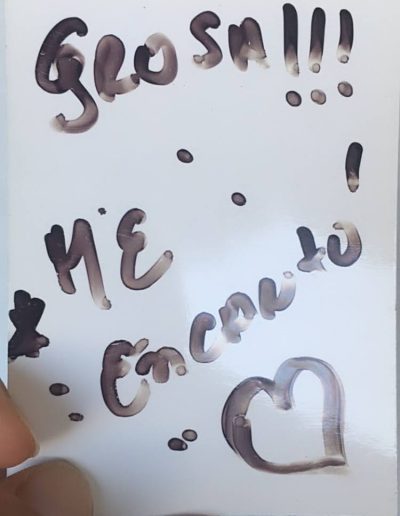 GROSA!!!
ME
Encantó!